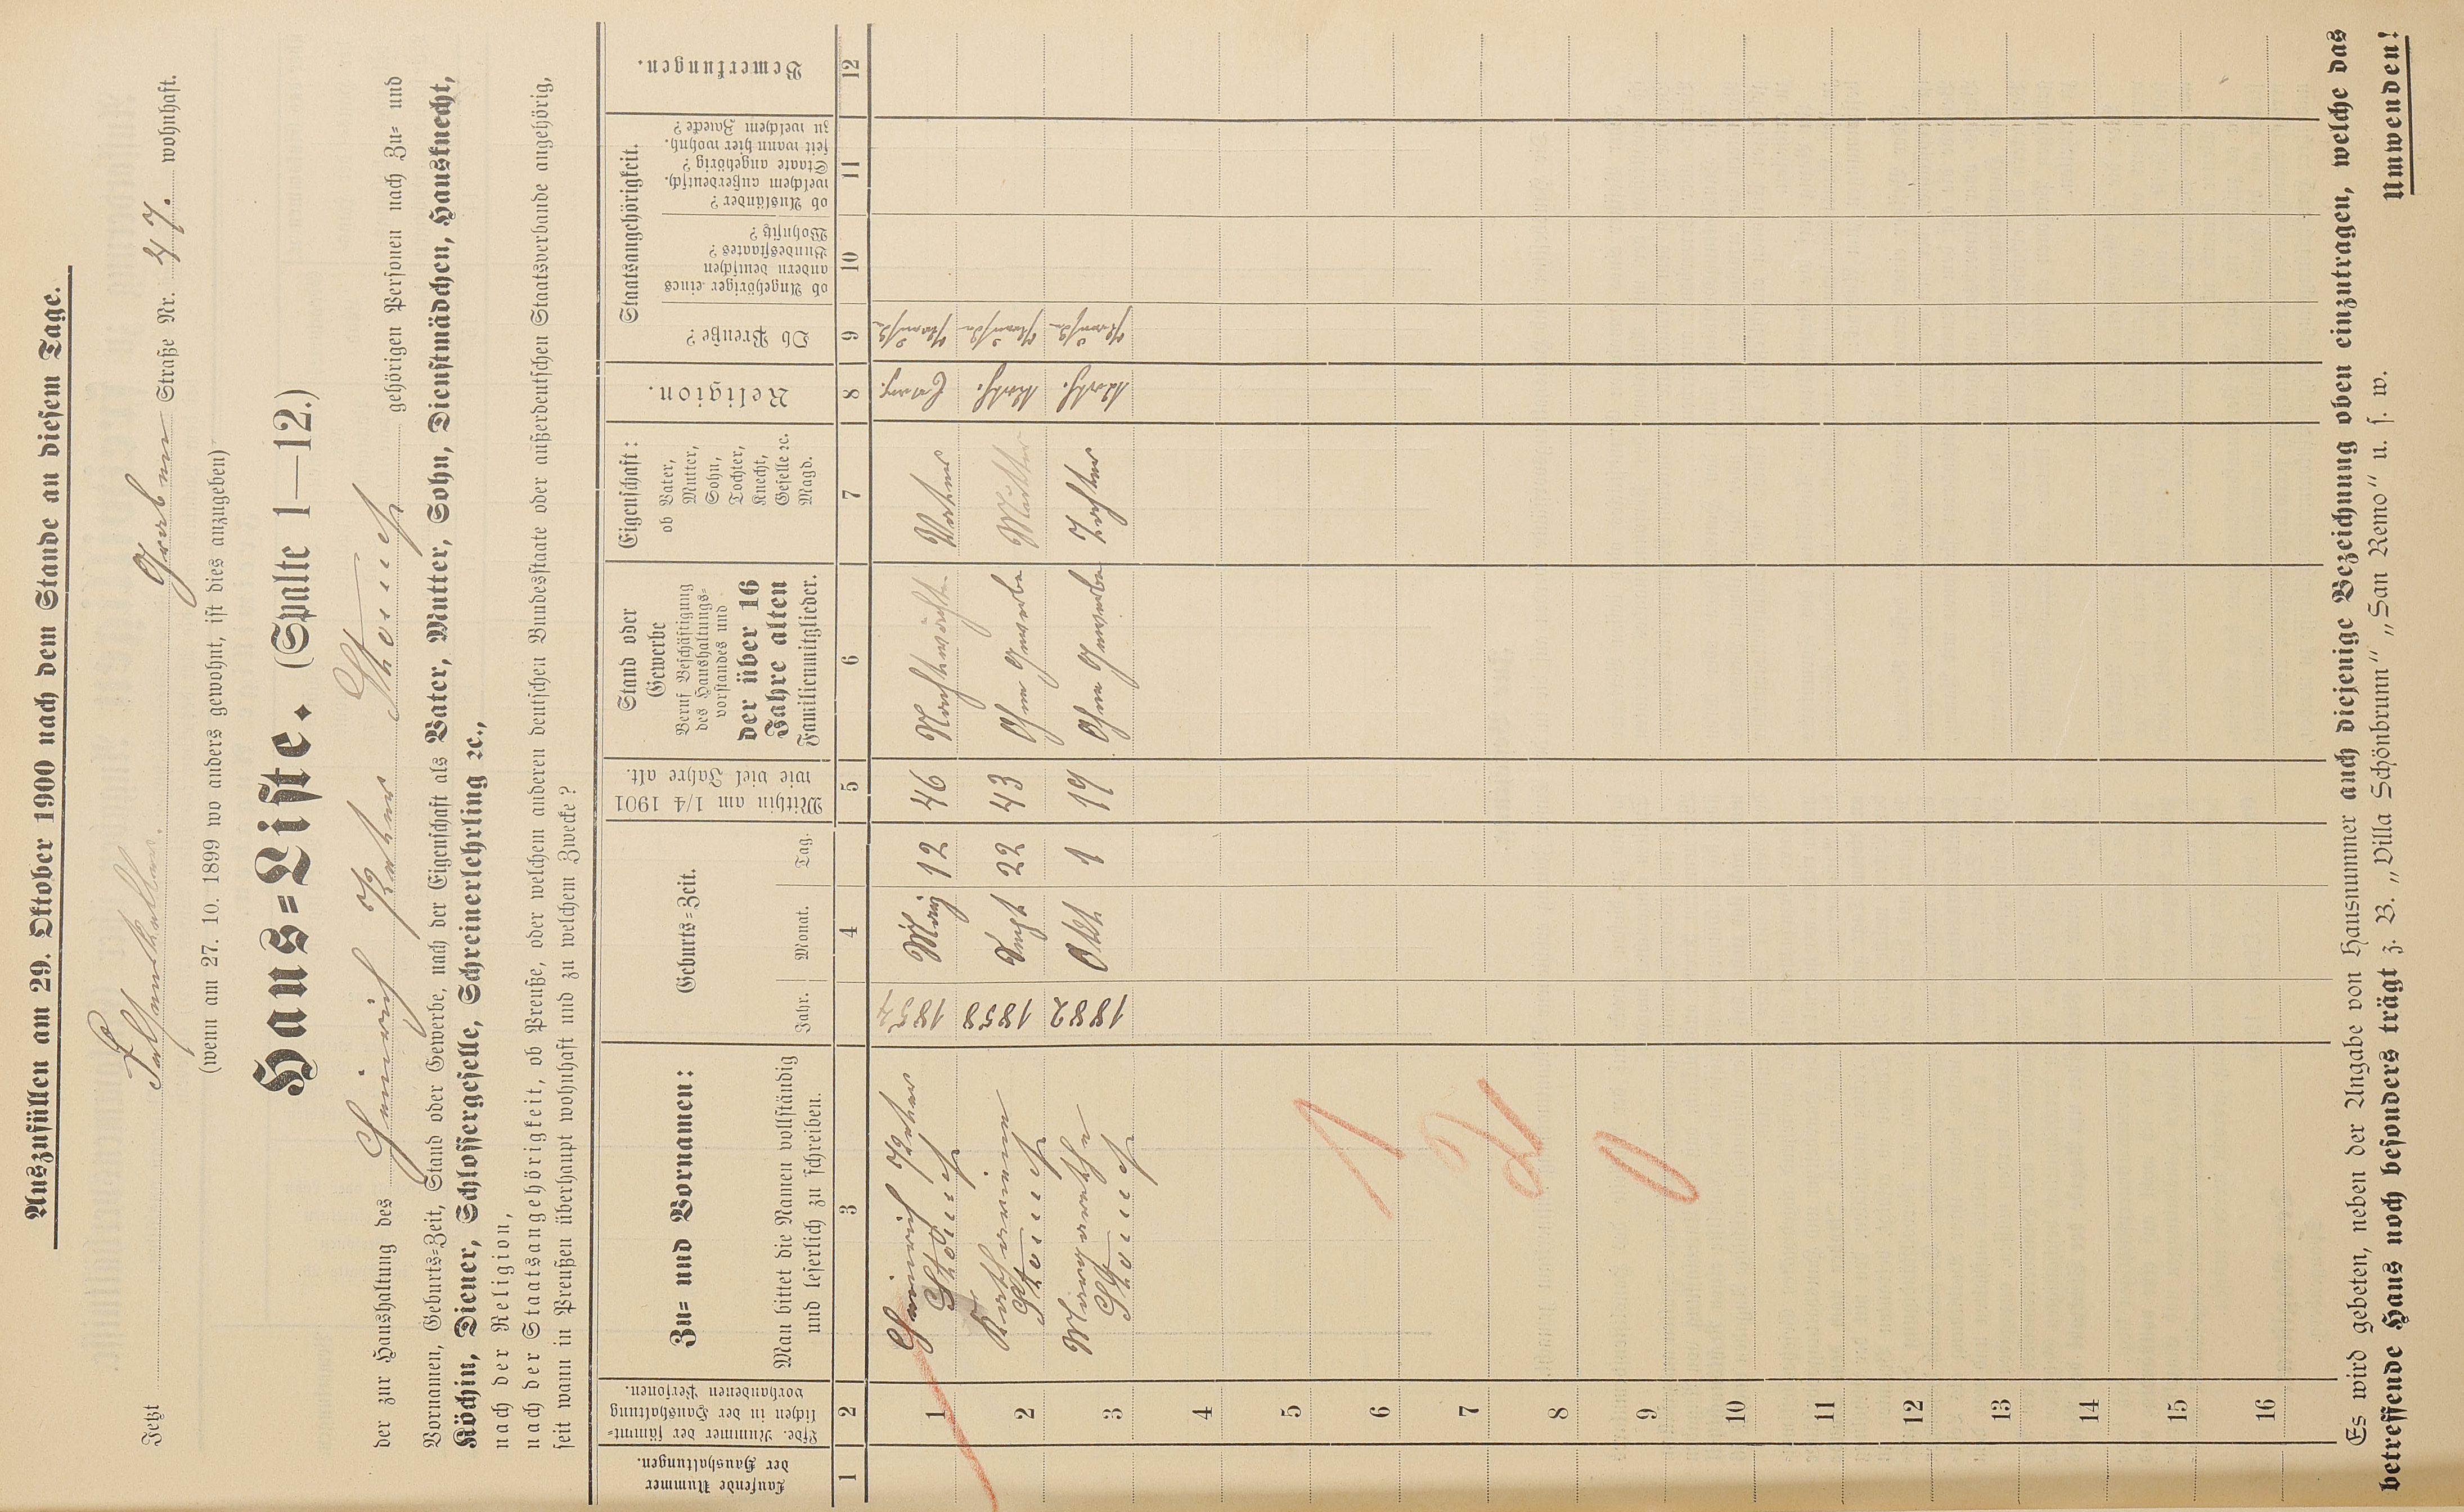 Auszufüllen am 29. Oktober 1900 nach dem Stande an diesem Tage.
Jetzt Graben Straße Nr. 47. wohnhaft.
(wenn am 27. 10. 1899 wo anders gewohnt, ist dies anzugeben)
Haus=Liste. (Spalte 1—12.)
der zur Haushaltung des Heinrich Peter gehörigen Personen nach Zu= und
Vornamen, Geburts=Zeit, Stand oder Gewerbe, nach der Eigenschaft als Vater, Mutter, Sohn, Dienstmädchen, Hausknecht,
Köchin, Diener, Schlossergeselle, Schreinerlehrling ꝛc.,
nach der Religion,
nach der Staatsangehörigkeit, ob Preuße, oder welchem anderen deutschen Bundesstaate oder außerdeutschen Staatsverbande angehörig,
seit wann in Preußen überhaupt wohnhaft und zu welchem Zwecke?
Laufende Nummer
der Haushaltungen.
Lfde. Nummer der sämmt=
lichen in der Haushaltung
vorhandenen Personen.
Zu= und Vornamen:
Man bittet die Namen vollständig
und leserlich zu schreiben.
Geburts=Zeit.
Jahr. Monat. Tag.
Mithin am 1/4 1901
wie viel Jahre alt.
Stand oder
Gewerbe
Beruf Beschäftigung
des Haushaltungs=
vorstandes und
der über 16
Jahre alten
Familienmitglieder.
Eigenschaft:
ob Vater,
Mutter,
Sohn,
Tochter,
Knecht,
Geselle ꝛc.
Magd.
Religion.
Staatsangehörigkeit.
Ob Preuße?
ob Angehöriger eines
andern deutschen
Bundesstaates?
Wohnsitz?
ob Ausländer?
welchem außerdeutsch.
Staate angehörig?
seit wann hier wohnh.
zu welchem Zwecke?
Bemerkungen.
1 2 3 4 5 6 7 8 9 10 11 12
1 Heinrich Peter 1854 März 12 46 Nachtwächter Vater Evang. Preuße
2 Katharina 1858 Sept 22 43 Ohne Gewerbe Mutter Kath. Preuße
3 Margarethe 1882 Okt 1 19 Ohne Gewerbe Tochter Kath. Preuße
4
5
6
7
8
9
10
11
12
13
14
15
16
1
2
0
Es wird gebeten, neben der Angabe von Hausnummer auch diejenige Bezeichnung oben einzutragen, welche das
betreffende Haus noch besonders trägt z. B. „Villa Schönbrunn“ „San Remo“ u. s. w.
Umwenden!